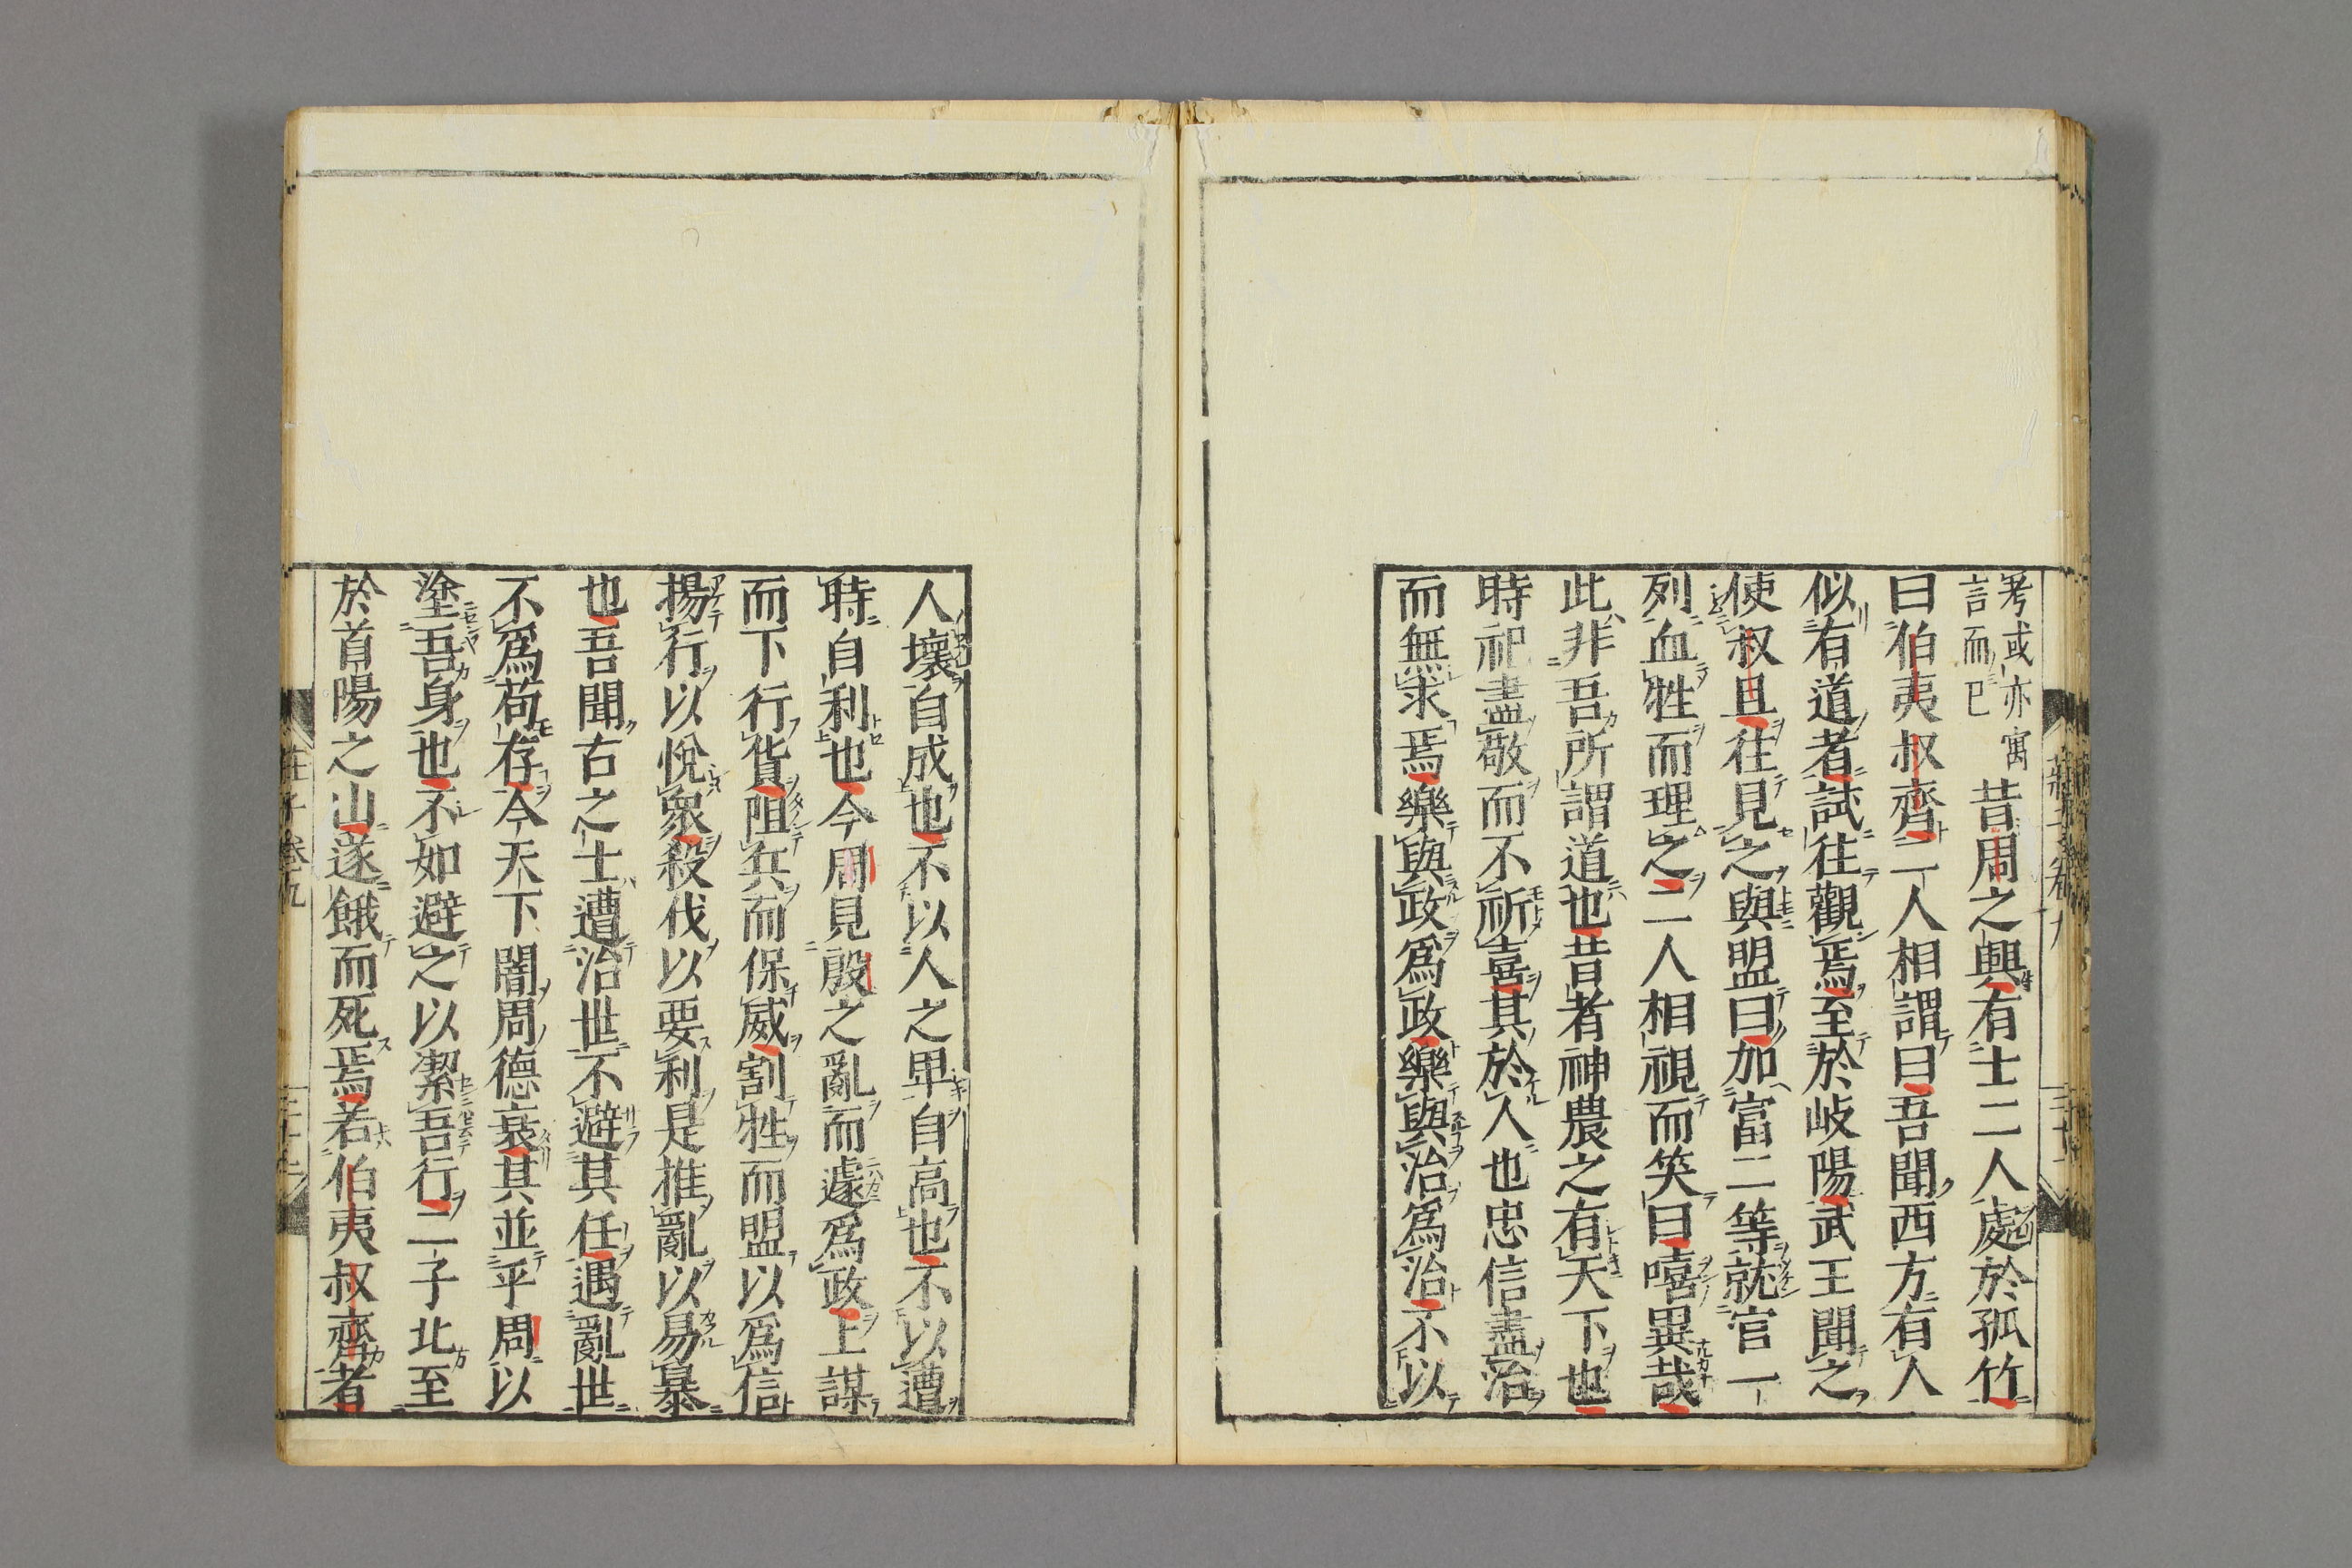 考或亦寓
言而已
昔周之興有士二人處於孤竹
曰伯夷叔齊二人相謂曰吾聞西方有人
似有道者試往觀焉至於岐陽武王聞之
使叔旦往見之與盟曰加富二等就官一
列血牲而理之二人相視而笑曰嘻異哉
此非吾所謂道也昔者神農之有天下也
時祀盡敬而不祈喜其於人也忠信盡治
而無求焉樂與政爲政樂與治爲治不以
人壞自成也不以人之卑自高也不以遭
時自利也今周見殷之亂而遽爲政上謀
而下行貨阻兵而保威割牲而盟以爲信
揚行以悅衆殺伐以要利是推亂以易暴
也吾聞古之士遭治世不避其任遇亂世
不爲苟存今天下闇周德衰其並乎周以
塗吾身也不如避之以潔吾行二子北至
於首陽之山遂餓而死焉若伯夷叔齊者
莊子卷九